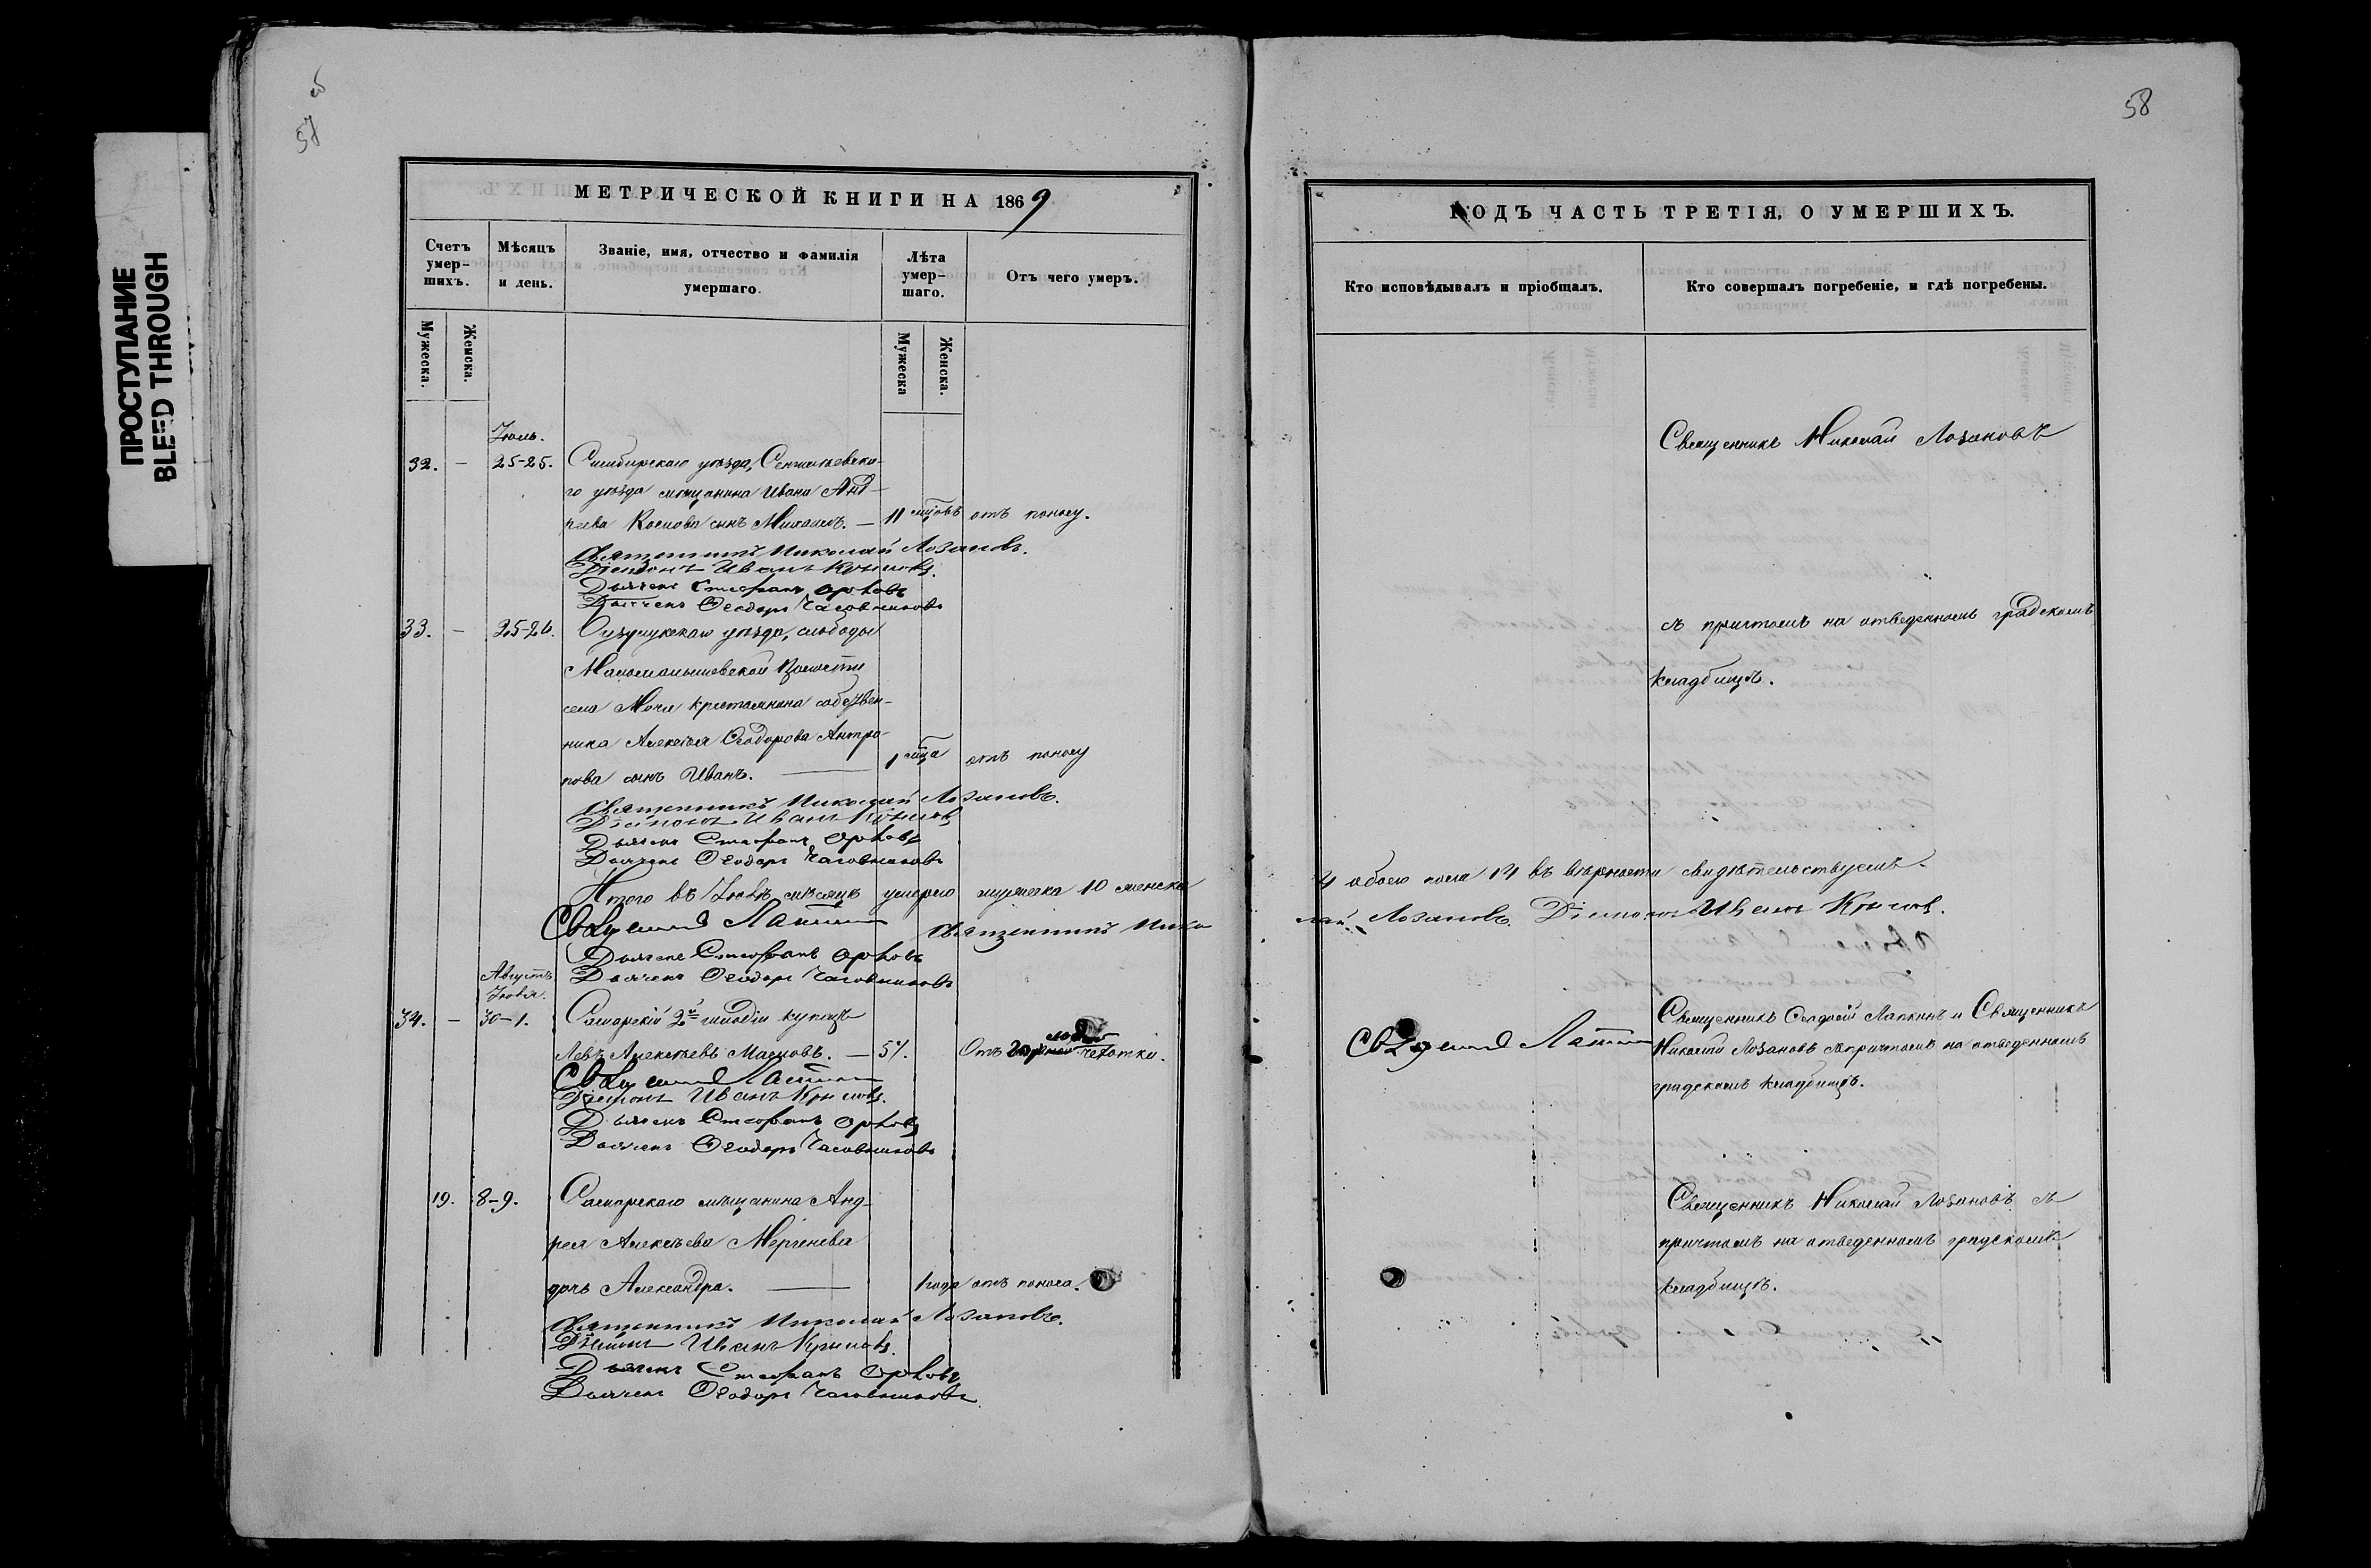 57
58
ПРОСТУПАНИЕ
BLEED THROUGH
МЕТРИЧЕСКОЙ КНИГИ НА 1869
Счетъ умер-шихъ.
Мѣсяцъ и день.
Званіе, имя, отчество и фамилія умершаго.
Лѣта умер-шаго.
Отъ чего умеръ.
Мужеска.
Женска.
Мужеска
Женска.
Іюль.
32. — 25-25. Симбирскаго уѣзда, Сенгилеевска-
го уѣзда мѣщанина Ивана Анд-
реева сынъ — 11 мцовъ отъ поносу.
Священникъ Николай Лозановъ.
Діаконъ Иванъ Крыловъ.
Дьячекъ Стефанъ Орловъ
Дьячекъ Ѳеодоръ Часовниковъ
33. — 25-26. уѣзда, слободы
волости
села Мочи крестьянина собствен-
ника Алексѣя Ѳеодорова Антро-
пова сынъ Иванъ. — 1 мца отъ поносу
Священникъ Николай Лозановъ.
Діаконъ Иванъ Крыловъ
Дьячекъ Стефанъ Орловъ
Дьячекъ Ѳеодоръ Часовниковъ
Итого въ Іюлѣ мѣсяцѣ умерло мужеска 10 женска
Священникъ Лапкинъ Священникъ Нико
Дьячекъ Стефанъ Орловъ
Дьячекъ Ѳеодоръ Часовниковъ
Августъ
Іюля.
34. — 30-1. Самарскій 2й гильдіи купецъ
Левъ Алексѣевъ Масловъ. — 57. Отъ чахотки.
Священникъ Лапкинъ
Діаконъ Иванъ Крыловъ.
Дьячекъ Стефанъ Орловъ
Дьячекъ Ѳеодоръ Часовниковъ
19. 8-9. Самарскаго мѣщанина Анд-
рея Алексѣева Мергенева
дочь Александра. — 1 года отъ поноса.
Священникъ Николай Лозановъ.
Діаконъ Иванъ Крыловъ.
Дьячекъ Стефанъ Орловъ
Дьячекъ Ѳеодоръ Часовниковъ
ГОДЪ ЧАСТЬ ТРЕТІЯ, О УМЕРШИХЪ.
Кто исповѣдывалъ и пріобщалъ.
Кто совершалъ погребеніе, и гдѣ погребены.
Священникъ Николай Лозановъ
съ причтомъ на отведенномъ градскомъ
кладбищѣ.
4 обоего пола 14 въ вѣрности свидѣтельствуемъ.
лай Лозановъ. Діаконъ Иванъ Крыловъ.
Священникъ Лапкинъ
Священникъ Лапкинъ и Священникъ
Николай Лозановъ съ причтомъ на отведенномъ
градскомъ кладбищѣ.
Священникъ Николай Лозановъ съ
причтомъ на отведенномъ градскомъ
кладбищѣ.